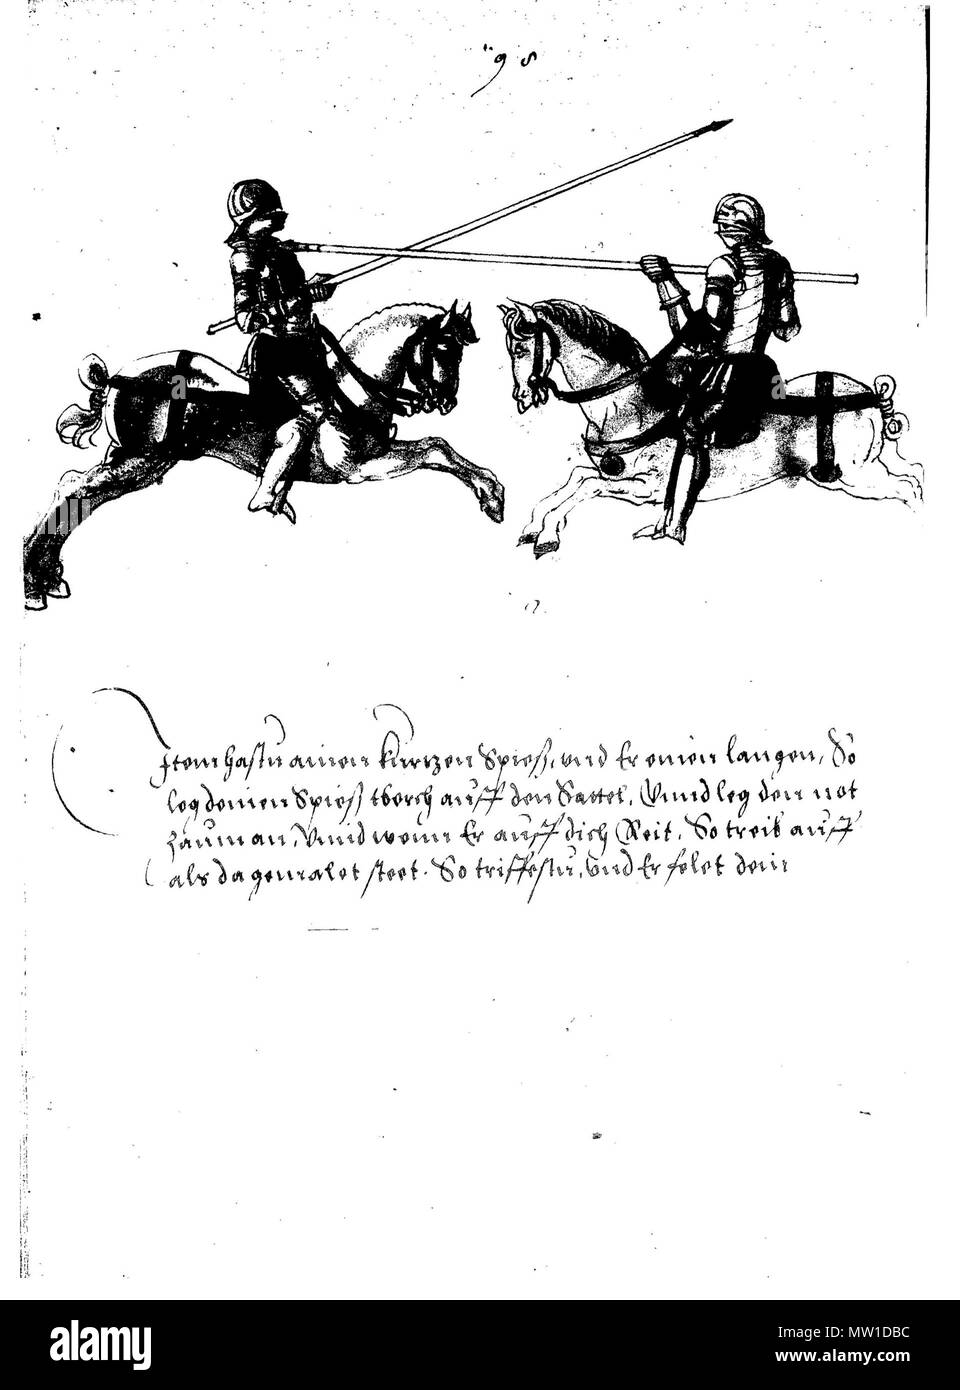 98
Item hastu ainen kurtzen Spieß, und Er einen langen, So
leg deinen Spieß tberch auff den Sattel, Unnd leg den not
zaum an, Unnd wenn Er auff dich Reit, So treib auff
als da gemalet steet. So triffestu, und Er felet dein
a
a
a
alamy
Image ID: MW1DBC
www.alamy.com